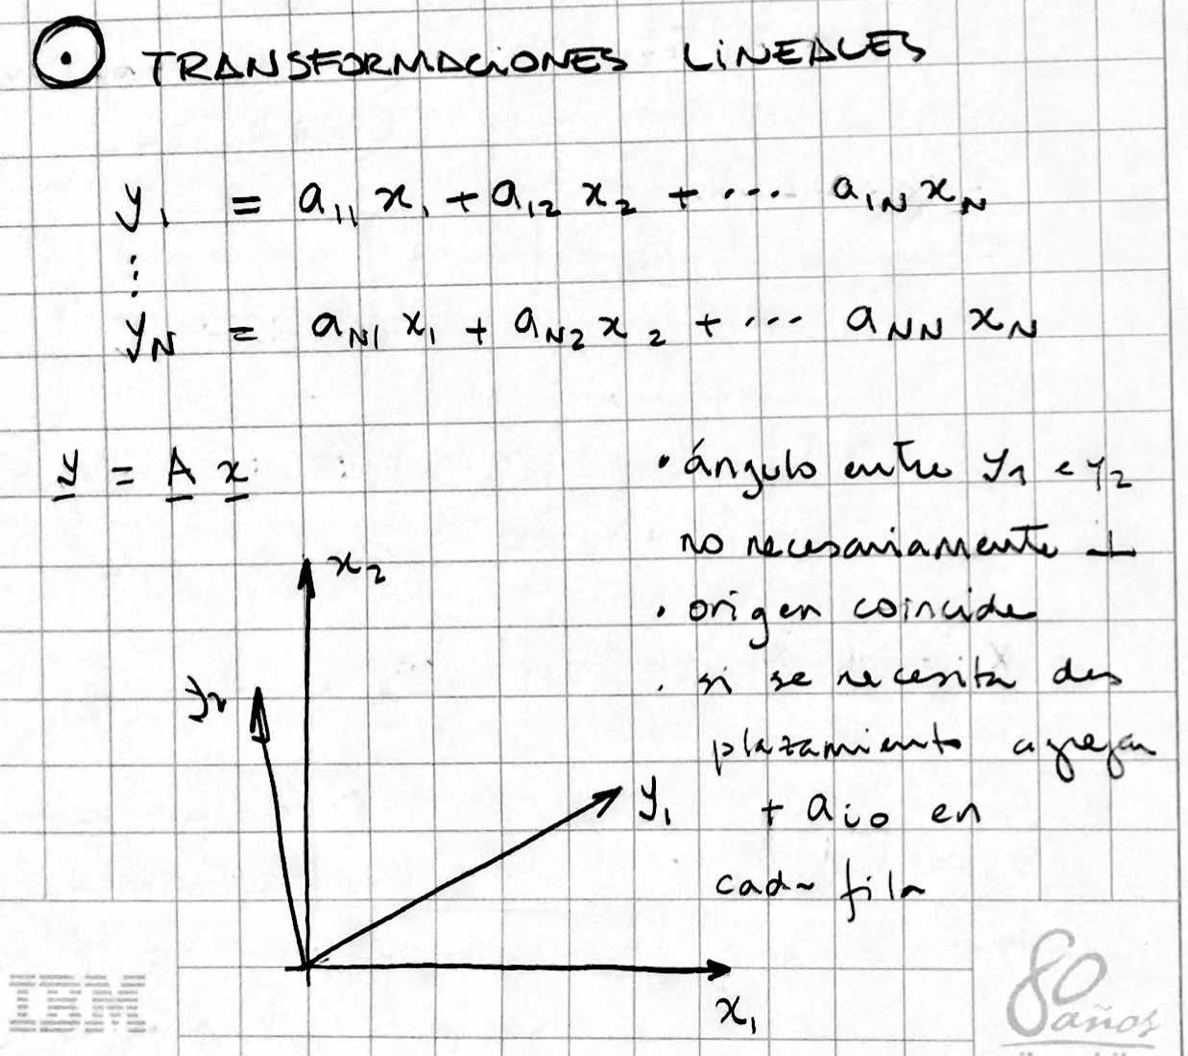 TRANSFORMACIONES LINEALES
y₁ = a₁₁ x₁ + a₁₂ x₂ + ... a₁N xN
⋮
yN = aN₁ x₁ + aN₂ x₂ + ... aNN xN
y = A x
• ángulo entre y₁ e y₂
no necesariamente ⊥
• origen coincide
• si se necesita des
plazamiento agregar
+ aᵢ₀ en
cada fila
x₂
y₂
y₁
x₁
IBM
80
años